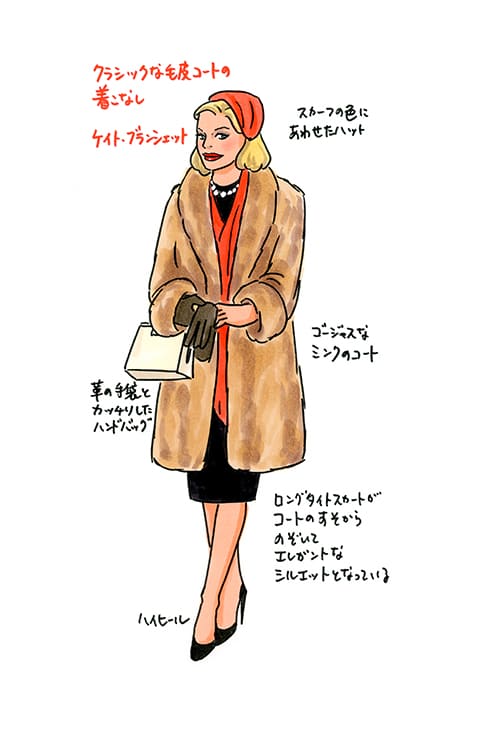 クラシックな毛皮コートの
着こなし
ケイト・ブランシェット
スカーフの色に
あわせたハット
ゴージャスな
ミンクのコート
革の手袋と
カッチリした
ハンドバッグ
ロングタイトスカートが
コートのすそから
のぞいて
エレガントな
シルエットとなっている
ハイヒール